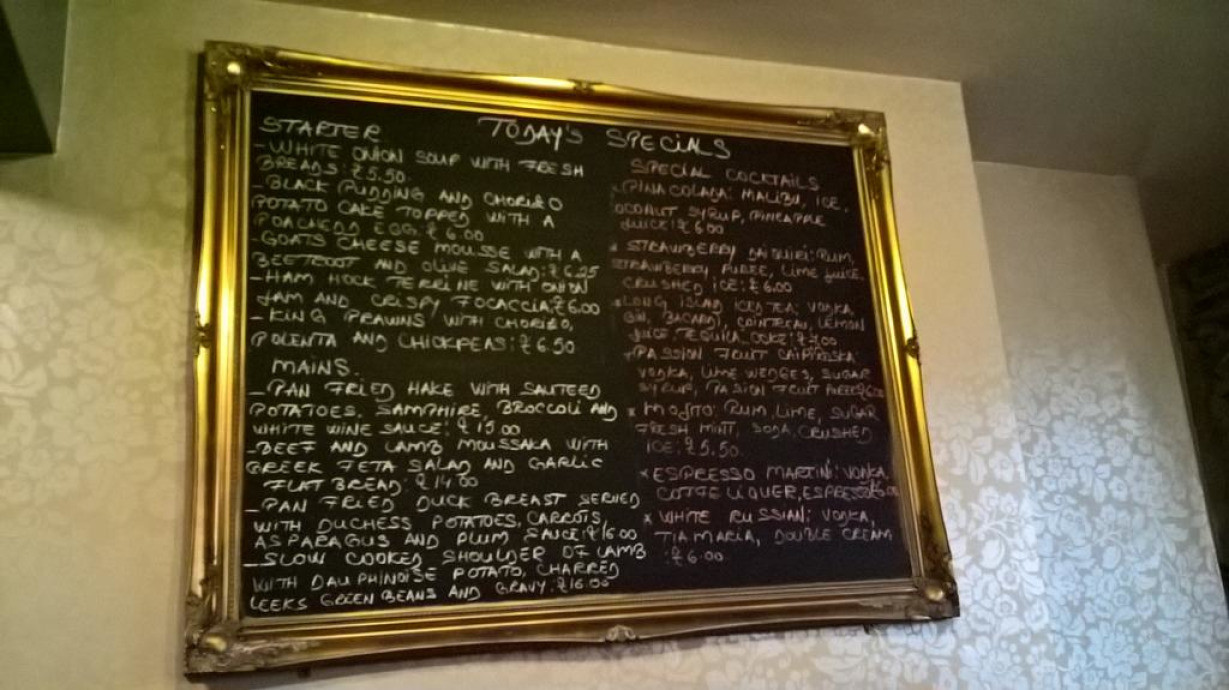 TODAY'S SPECIALS
STARTER
- WHITE ONION SOUP WITH FRESH
BREADS: £5.50.
- BLACK PUDDING AND CHORIZO
POTATO CAKE TOPPED WITH A
POACHEDD EGG: £6.00
- GOATS CHEESE MOUSSE WITH A
BEETROOT AND OLIVE SALAD: £6.25
- HAM HOCK TERRINE WITH ONION
JAM AND CRISPY FOCACCIA: £6.00
- KING PRAWNS WITH CHORIZO,
POLENTA AND CHICKPEAS: £6.50
MAINS.
- PAN FRIED HAKE WITH SAUTEED
POTATOES, SAMPHIRE, BROCCOLI AND
WHITE WINE SAUCE: £15.00
- BEEF AND LAMB MOUSSAKA WITH
GREEK FETA SALAD AND GARLIC
FLAT BREAD: £14.00
- PAN FRIED DUCK BREAST SERVED
WITH DUCHESS POTATOES, CARROTS,
ASPARAGUS AND PLUM SAUCE: £16.00
- SLOW COOKED SHOULDER OF LAMB
WITH DAUPHINOISE POTATO, CHARRED
LEEKS GREEN BEANS AND GRAVY: £16.00
SPECIAL COCKTAILS
* PINA COLADA: MALIBU, ICE,
COCONUT SYRUP, PINEAPPLE
JUICE: £6.00
* STRAWBERRY DAIQUIRI: RUM,
STRAWBERRY, PUREE, LIME JUICE.
CRUSHED ICE: £6.00
* LONG ISLAD ICED TEA: VODKA,
GIN, BACARDI, COINTREAU, LEMON
JUICE, TEQUILA, COKE: £7.00
* PASSION FRUIT CAIPIROSKA
VODKA, LIME WEDGES, SUGAR
SYRUP, PASION FRUIT PUREE
* MOJITO: RUM, LIME, SUGAR
FRESH MINT, SODA, CRUSHED
ICE: £5.50.
* ESPRESSO MARTINI: VODKA,
COFFE LIQUER, ESPRESSO
* WHITE RUSSIAN: VODKA,
TIA MARIA, DOUBLE CREAM
: £6.00